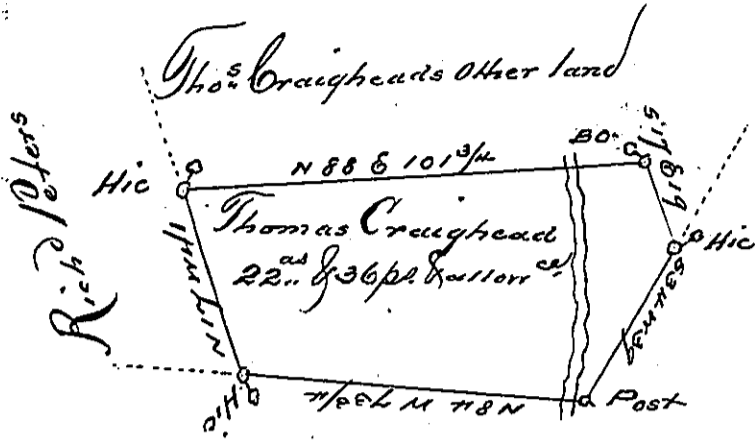 Thoˢ Craigheads Other land
Richᵈ Peters
Hic
N 88 E 101 3/4
BO
S 17 E 19
Hic
Thomas Craighead
22 aˢ & 36 pˢ & allowᶜᵉ
N 17 W 41
S 34 W 39
Hic
N 84 W 73 3/4
Post